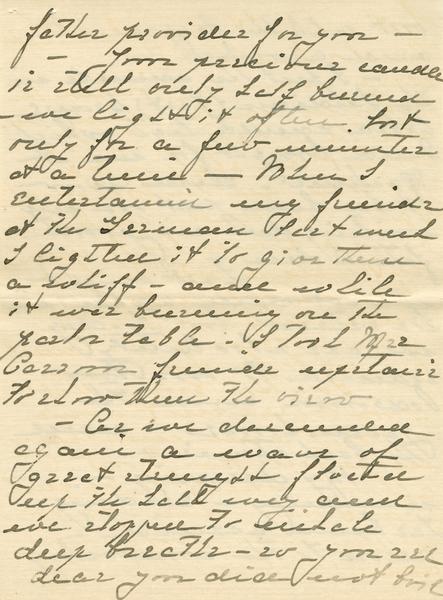 father provider for you —
— Your precious candle
is still only half burned
- we light it often but
only for a few minutes
at a time — When I
entertain my friends
at the German last week
I lighted it to give them
a whiff - and while
it was burning on the
parlor table - I took Mrs
friends upstairs
to show them the view
- As we descended
again a wave of
great strength floated
up the hall way and
we stopped to inhale
deep breaths - so you see
dear you did not